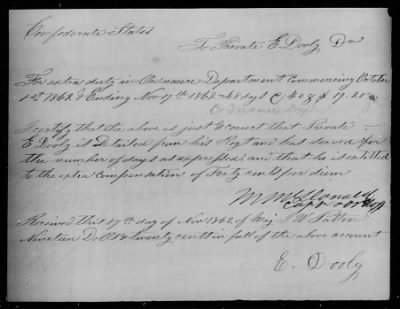 Confederate States
To Private E Dooly, Dr
For extra duty in Ordnance Department Commencing October
1st 1862 & Ending Nov 17th 1862 - 48 days @ 40 c $ 19.20
Ordnance Dept
I certify that the above is just & correct that Private
E Dooly is Detailed from his Regt and has served for
the number of days as expressed and that he is entitled
to the extra compensation of Forty cents per diem
McDonald
Capt
Received this 17th day of Nov 1862 of Maj J W Sutton
Nineteen Dolls & twenty cents in full of the above account
E. Dooly